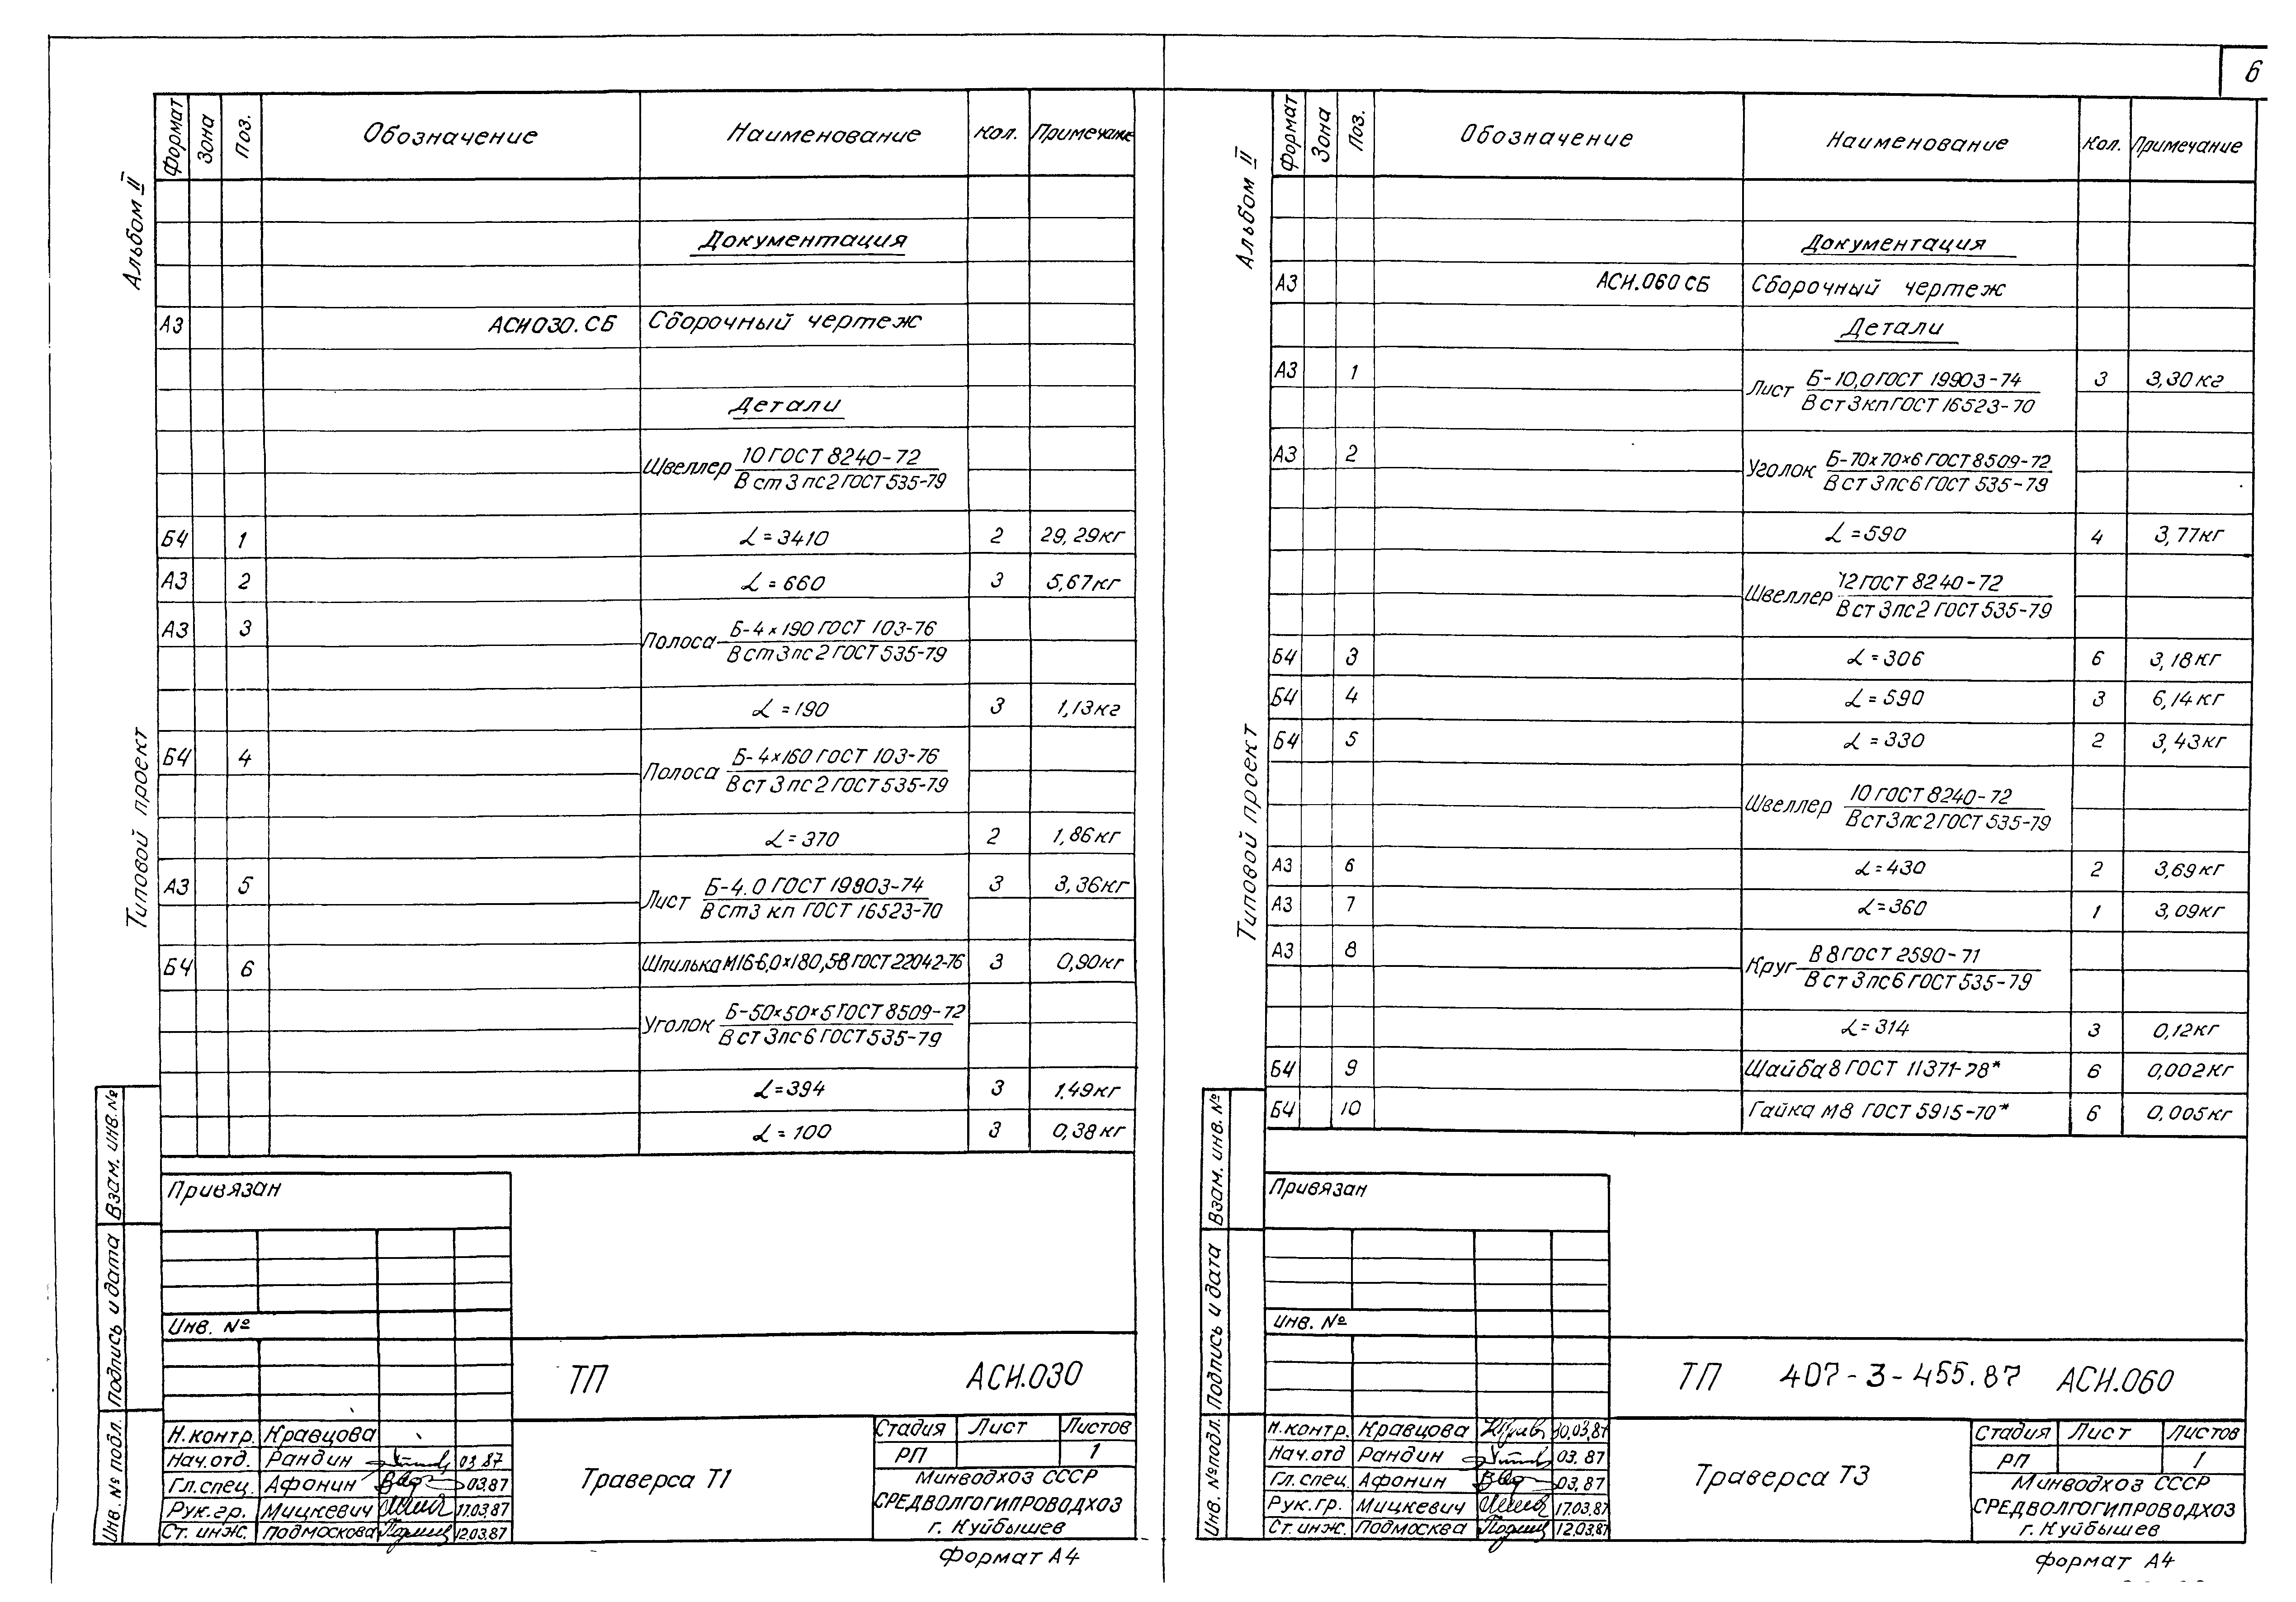 6
Альбом II
Типовой проект
Формат Зона Поз. Обозначение Наименование Кол. Примечание
Документация
А3 АСИ030.СБ Сборочный чертеж
Детали
Швеллер 10 ГОСТ 8240-72
В ст 3 пс 2 ГОСТ 535-79
БЧ 1 L=3410 2 29,29кг
А3 2 L=660 3 5,67кг
А3 3 Полоса Б-4×190 ГОСТ 103-76
В ст 3 пс 2 ГОСТ 535-79
L=190 3 1,13кг
БЧ 4 Полоса Б-4×160 ГОСТ 103-76
В ст 3 пс 2 ГОСТ 535-79
L=370 2 1,86кг
А3 5 Лист Б-4.0 ГОСТ 19803-74 3 3,36кг
В ст3 кп ГОСТ 16523-70
БЧ 6 Шпилька М16-6,0×180,58 ГОСТ 22042-76 3 0,90кг
Уголок Б-50×50×5 ГОСТ 8509-72
В ст 3пс 6 ГОСТ 535-79
L=394 3 1.49кг
L=100 3 0,38кг
Взам. инв. №
Подпись и дата
Инв. № подл.
Привязан
Инв. №
ТП АСИ.030
Н.контр. Кравцова
Нач.отд. Рандин 03.87
Гл.спец. Афонин 03.87
Рук.гр. Мицкевич 17.03.87
Ст. инж. Подмоскова 12.03.87
Траверса Т1
Стадия Лист Листов
РП 1
Минводхоз СССР
СРЕДВОЛГОГИПРОВОДХОЗ
г. Куйбышев
Формат А4
Альбом II
Типовой проект
Формат Зона Поз. Обозначение Наименование Кол. Примечание
Документация
А3 АСИ.060 СБ Сборочный чертеж
Детали
А3 1 Лист Б-10,0 ГОСТ 19903-74 3 3,30кг
В ст 3 кп ГОСТ 16523-70
А3 2 Уголок Б-70×70×6 ГОСТ 8509-72
В ст 3 пс 6 ГОСТ 535-79
L=590 4 3,77кг
Швеллер 12 ГОСТ 8240-72
В ст 3пс 2 ГОСТ 535-79
БЧ 3 L=306 6 3,18кг
БЧ 4 L=590 3 6,14кг
БЧ 5 L=330 2 3,43кг
Швеллер 10 ГОСТ 8240-72
В ст 3пс 2 ГОСТ 535-79
А3 6 L=430 2 3,69кг
А3 7 L=360 1 3,09кг
А3 8 Круг В 8 ГОСТ 2590-71
В ст 3 пс 6 ГОСТ 535-79
L=314 3 0,12кг
БЧ 9 Шайба 8 ГОСТ 11371-78* 6 0,002кг
БЧ 10 Гайка М8 ГОСТ 5915-70* 6 0,005кг
Взам. инв. №
Подпись и дата
Инв. № подл.
Привязан
Инв. №
ТП 407-3-455.87 АСИ.060
Н.контр. Кравцова 30.03.87
Нач.отд Рандин 03.87
Гл.спец. Афонин 03.87
Рук.гр. Мицкевич 17.03.87
Ст.инж. Подмосква 12.03.87
Траверса Т3
Стадия Лист Листов
РП 1
Минводхоз СССР
СРЕДВОЛГОГИПРОВОДХОЗ
г. Куйбышев
Формат А4